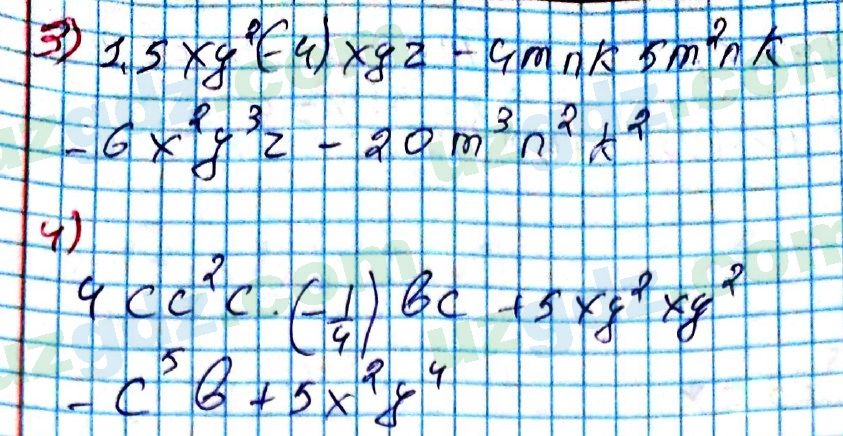 3) 1,5xy²(-4)xyz - 4mnk 5m²nk
-6x²y³z - 20m³n²k²
4)
4cc²c·(-1/4)bc + 5xy²xy²
-c⁵b + 5x²y⁴